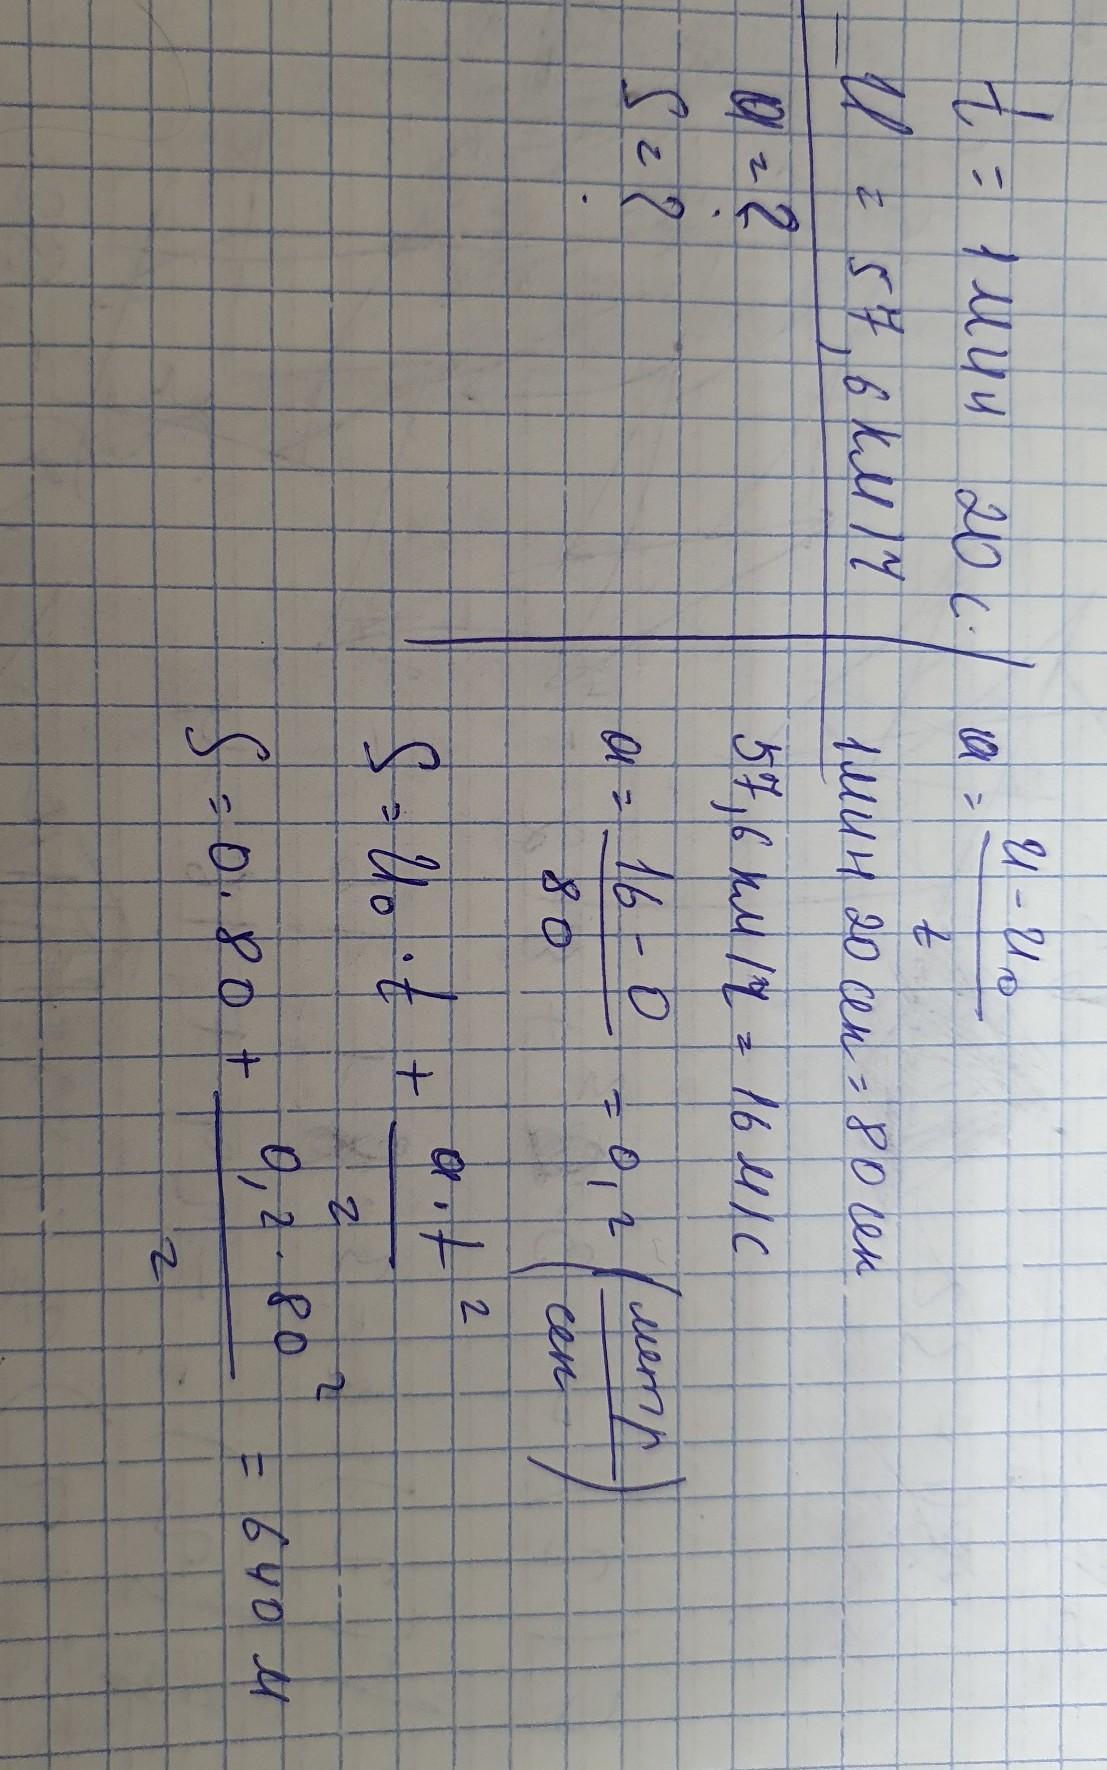 t = 1 мин 20 с.
U = 57,6 км/ч
a = ?
S = ?
a = (U - U₀) / t
1 мин 20 сек = 80 сек
57,6 км/ч = 16 м/с
a = (16 - 0) / 80 = 0,2 (метр / сек)
S = U₀ · t + (a · t²) / 2
S = 0 · 80 + (0,2 · 80²) / 2 = 640 м